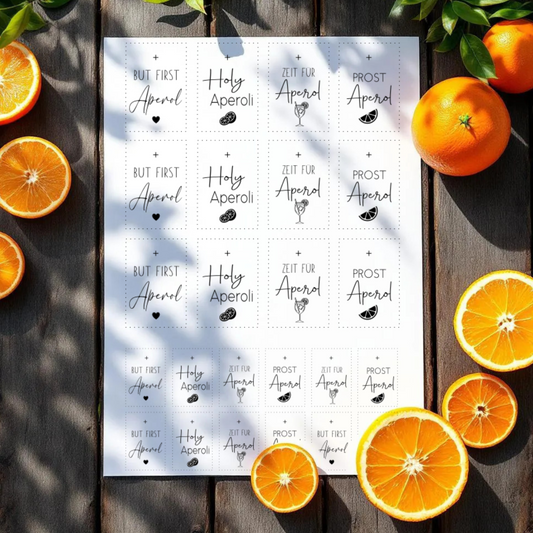 BUT FIRST
Aperol
Holy
Aperoli
ZEIT FÜR
Aperol
PROST
Aperol
BUT FIRST
Aperol
Holy
Aperoli
ZEIT FÜR
Aperol
PROST
Aperol
BUT FIRST
Aperol
Holy
Aperoli
ZEIT FÜR
Aperol
PROST
Aperol
BUT FIRST
Aperol
Holy
Aperoli
ZEIT FÜR
Aperol
PROST
Aperol
ZEIT FÜR
Aperol
PROST
Aperol
BUT FIRST
Aperol
Holy
Aperoli
ZEIT FÜR
Aperol
PROST
Aperol
BUT FIRST
Aperol